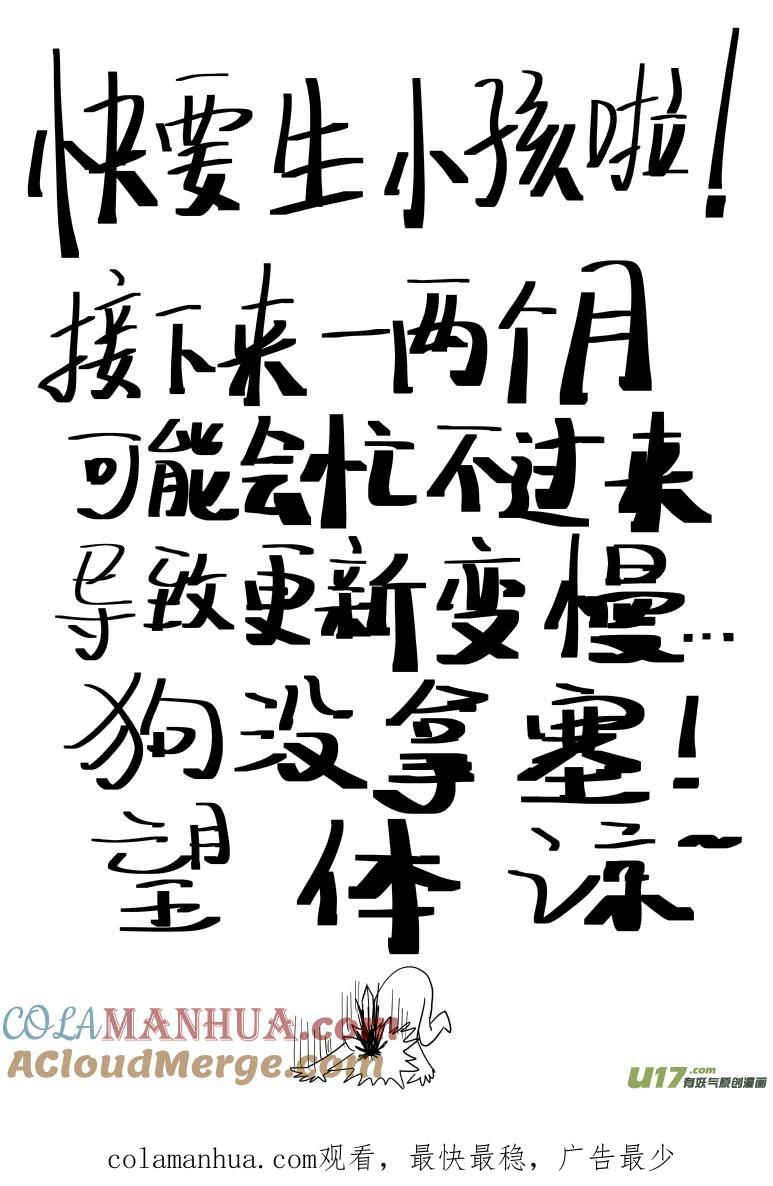 快要生小孩啦!
接下来一两个月
可能会忙不过来
导致更新变慢...
狗没拿塞!
望体谅~
COLAMANHUA.com
ACloudMerge.com
U17.com
有妖气原创漫画
colamanhua.com观看，最快最稳，广告最少